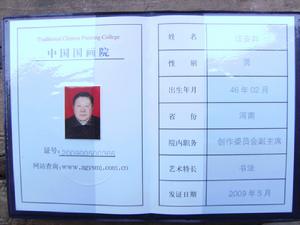 Traditional Chinese Painting College
中国国画院
证号:200900500365
网站查询:www.zgysmj.com.cn
姓 名
性 别 男
出生年月 46年02月
省 份 河南
院内职务 创作委员会副主席
艺术特长 书法
发证日期 2009年5月